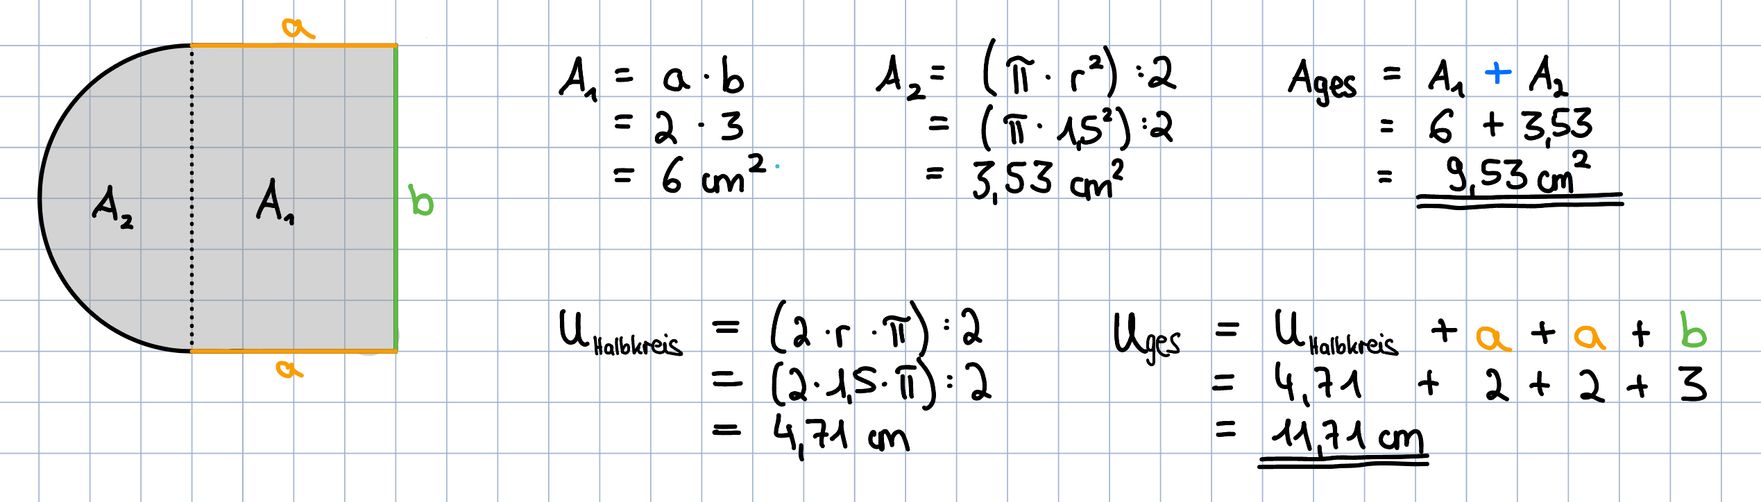 a
A₂ A₁ b
a
A₁ = a · b
= 2 · 3
= 6 cm²
A₂ = (π · r²) : 2
= (π · 1,5²) : 2
= 3,53 cm²
Ages = A₁ + A₂
= 6 + 3,53
= 9,53 cm²
U Halbkreis = (2 · r · π) : 2
= (2 · 1,5 · π) : 2
= 4,71 cm
Uges = U Halbkreis + a + a + b
= 4,71 + 2 + 2 + 3
= 11,71 cm